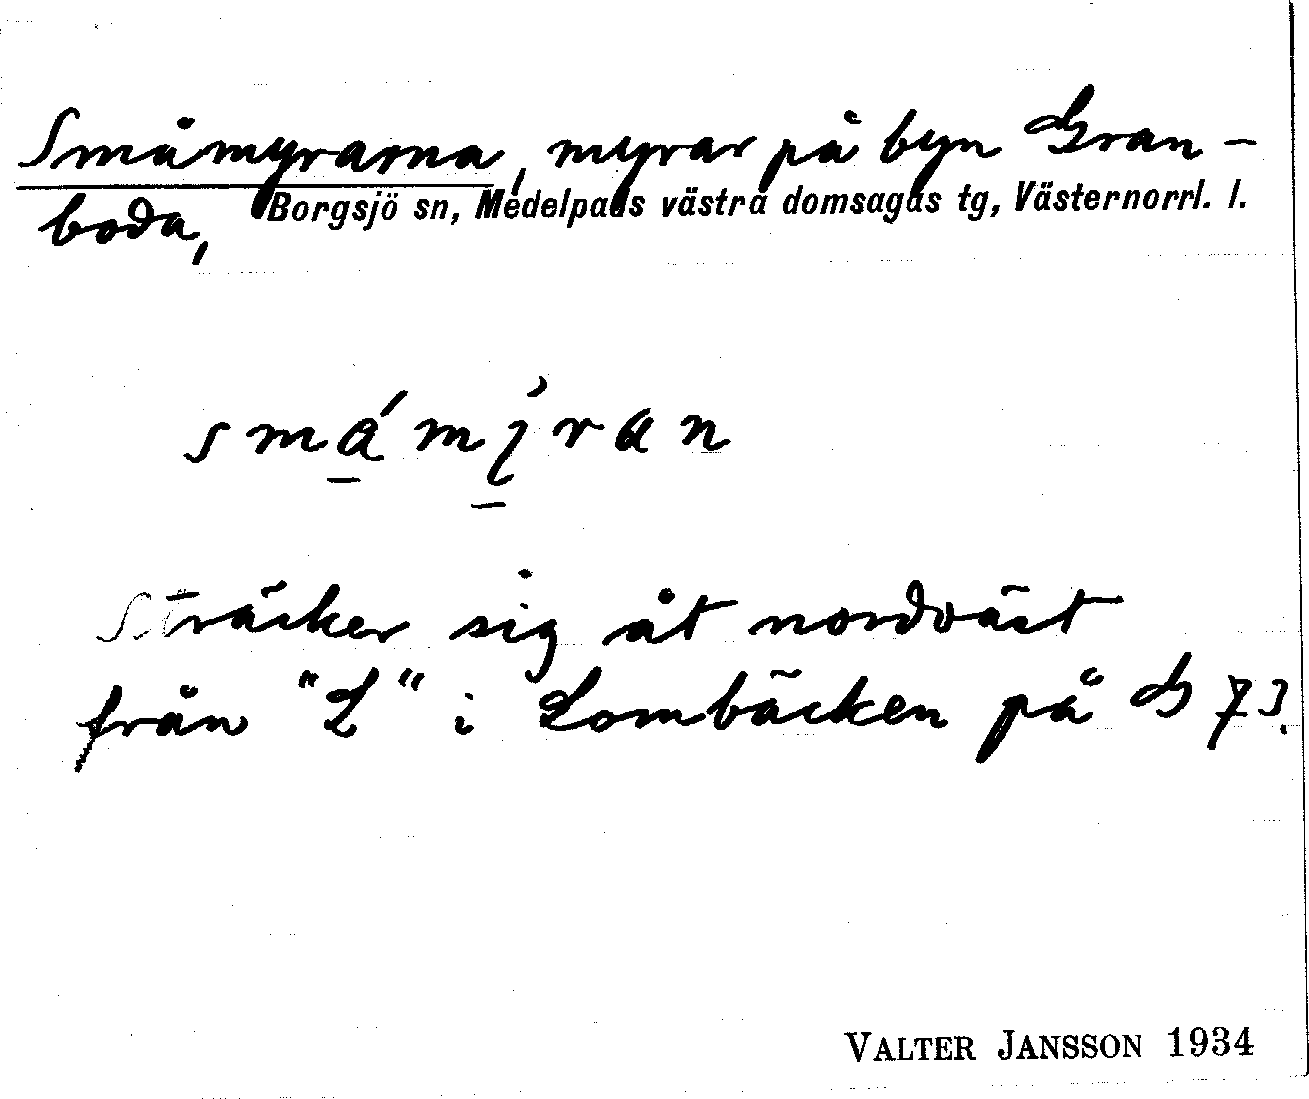 Småmyrarna, myrar på byn Gran-
boda, Borgsjö sn, Medelpads västra domsagas tg, Västernorrl. l.
Sträcker sig åt nordväst
från "L" i Lombäcken på G 73.
VALTER JANSSON 1934